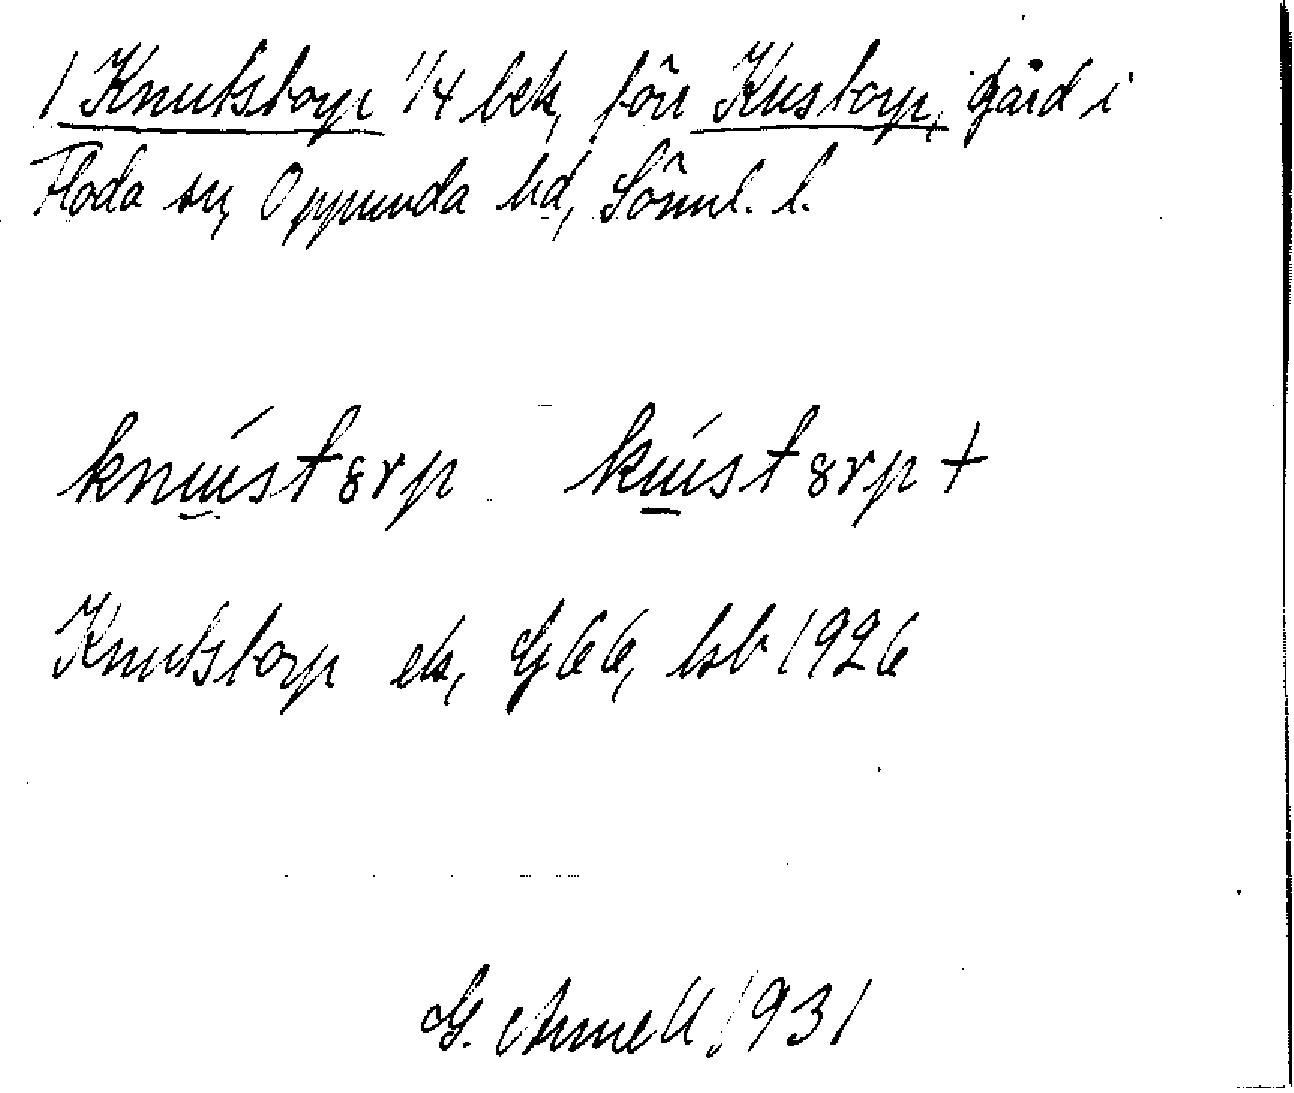 1 Knutstorp 1/4 bek, förr Kustorp, gård i
Floda sn, Oppunda hd, Sörml. l.
knústørp kústørp +
Knutstorp ek, G 66, jsb 1926
G. Armell 1931